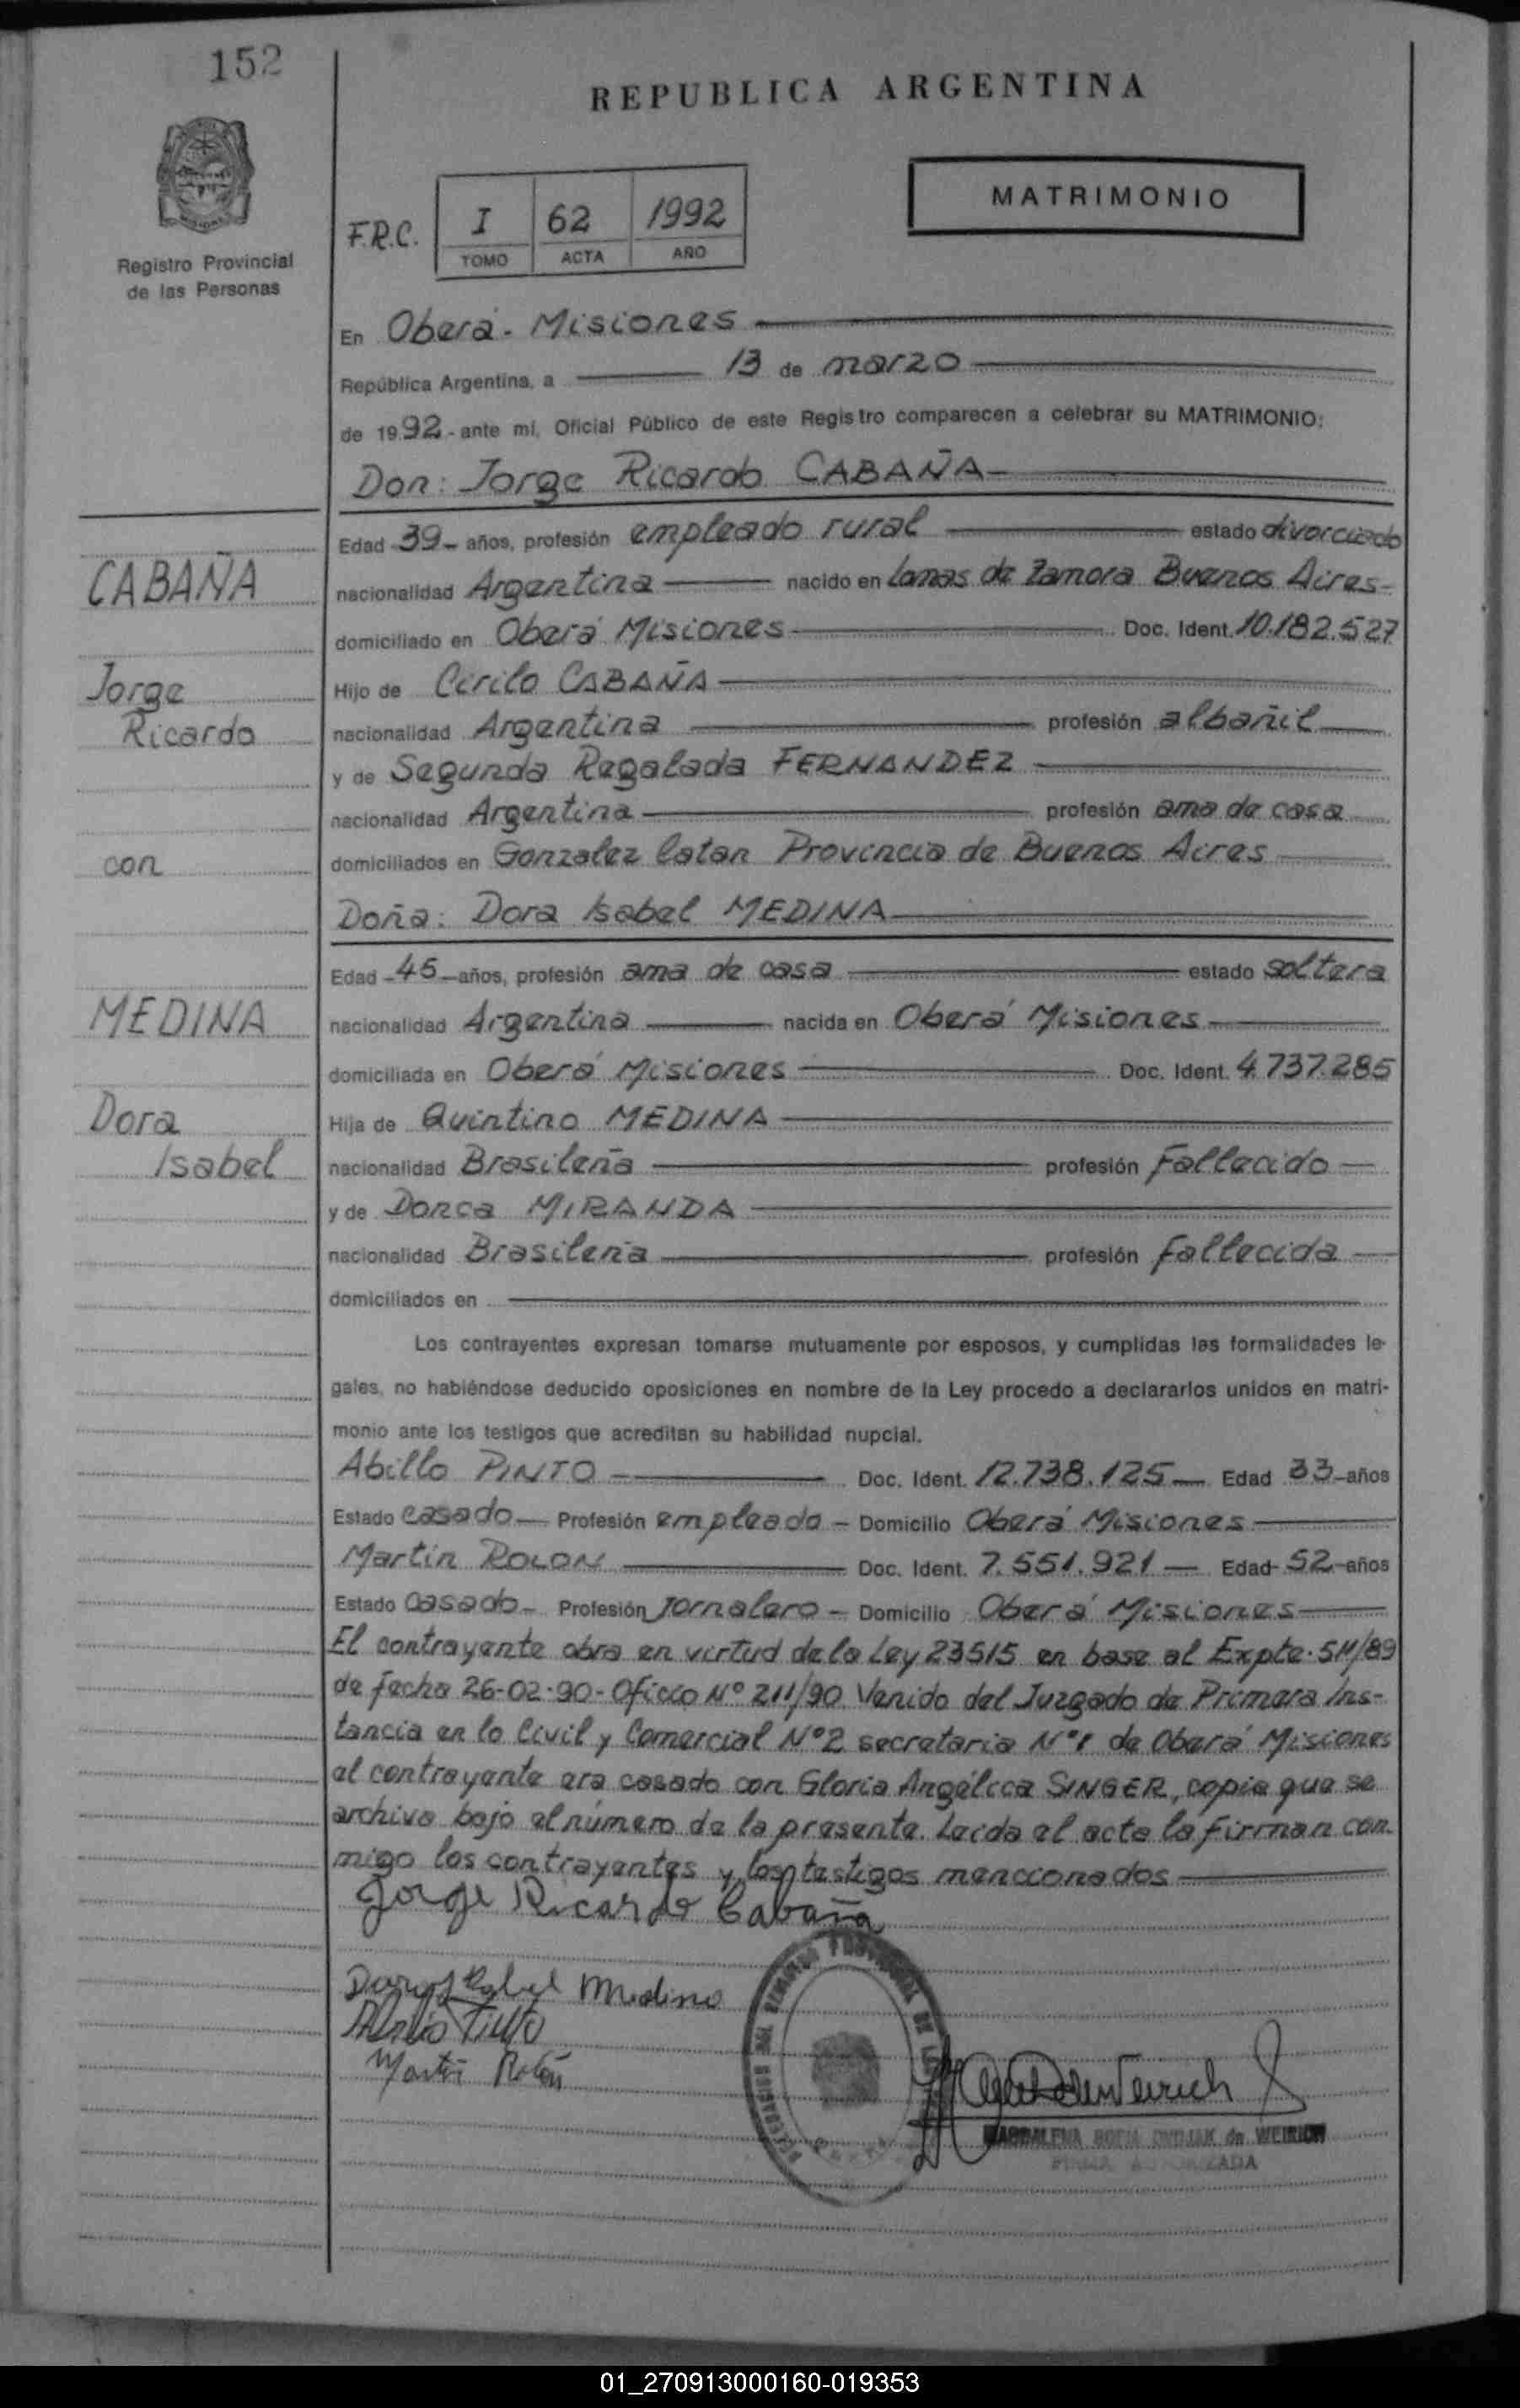 152
REPUBLICA ARGENTINA
MATRIMONIO
F.R.C. I 62 1992
TOMO ACTA AÑO
Registro Provincial
de las Personas
En Oberá - Misiones
República Argentina, a 13 de marzo
de 1992 - ante mí, Oficial Público de este Registro comparecen a celebrar su MATRIMONIO:
Don: Jorge Ricardo CABAÑA
Edad 39 años, profesión empleado rural estado divorciado
CABAÑA
nacionalidad Argentina nacido en Lomas de Zamora Buenos Aires-
domiciliado en Oberá Misiones Doc. Ident. 10.182.527
Jorge
Hijo de Cirilo CABAÑA
Ricardo
nacionalidad Argentina profesión albañil
y de Segunda Regalada FERNANDEZ
nacionalidad Argentina profesión ama de casa
con
domiciliados en Gonzalez Catan Provincia de Buenos Aires
Doña: Dora Isabel MEDINA
Edad 45 años, profesión ama de casa estado soltera
MEDINA
nacionalidad Argentina nacida en Oberá Misiones
domiciliada en Oberá Misiones Doc. Ident. 4.737.285
Dora
Hija de Quintino MEDINA
Isabel
nacionalidad Brasileña profesión Fallecido
y de Dorca MIRANDA
nacionalidad Brasileña profesión fallecida
domiciliados en
Los contrayentes expresan tomarse mutuamente por esposos, y cumplidas las formalidades le-
gales, no habiéndose deducido oposiciones en nombre de la Ley procedo a declararlos unidos en matri-
monio ante los testigos que acreditan su habilidad nupcial.
Abillo PINTO Doc. Ident. 12.738.125 Edad 33 años
Estado casado Profesión empleado - Domicilio Oberá Misiones
Martin ROLON Doc. Ident. 7.551.921 Edad 52 años
Estado casado - Profesión Jornalero - Domicilio Oberá Misiones
El contrayente obra en virtud de la Ley 23515 en base al Expte. 511/89
de fecha 26-02-90 - Oficio Nº 211/90 Venido del Juzgado de Primera Ins-
tancia en lo Civil y Comercial Nº 2 secretaria Nº 1 de Oberá Misiones
el contrayente era casado con Gloria Angélica SINGER, copia que se
archiva bajo el número de la presente. Leida el acta la firman con-
migo los contrayentes y los testigos mencionados
Jorge Ricardo Cabaña
Dora Isabel Medina
Abilio Pinto
Martin Rolón
de WEIRICH
FIRMA AUTORIZADA
01_270913000160-019353